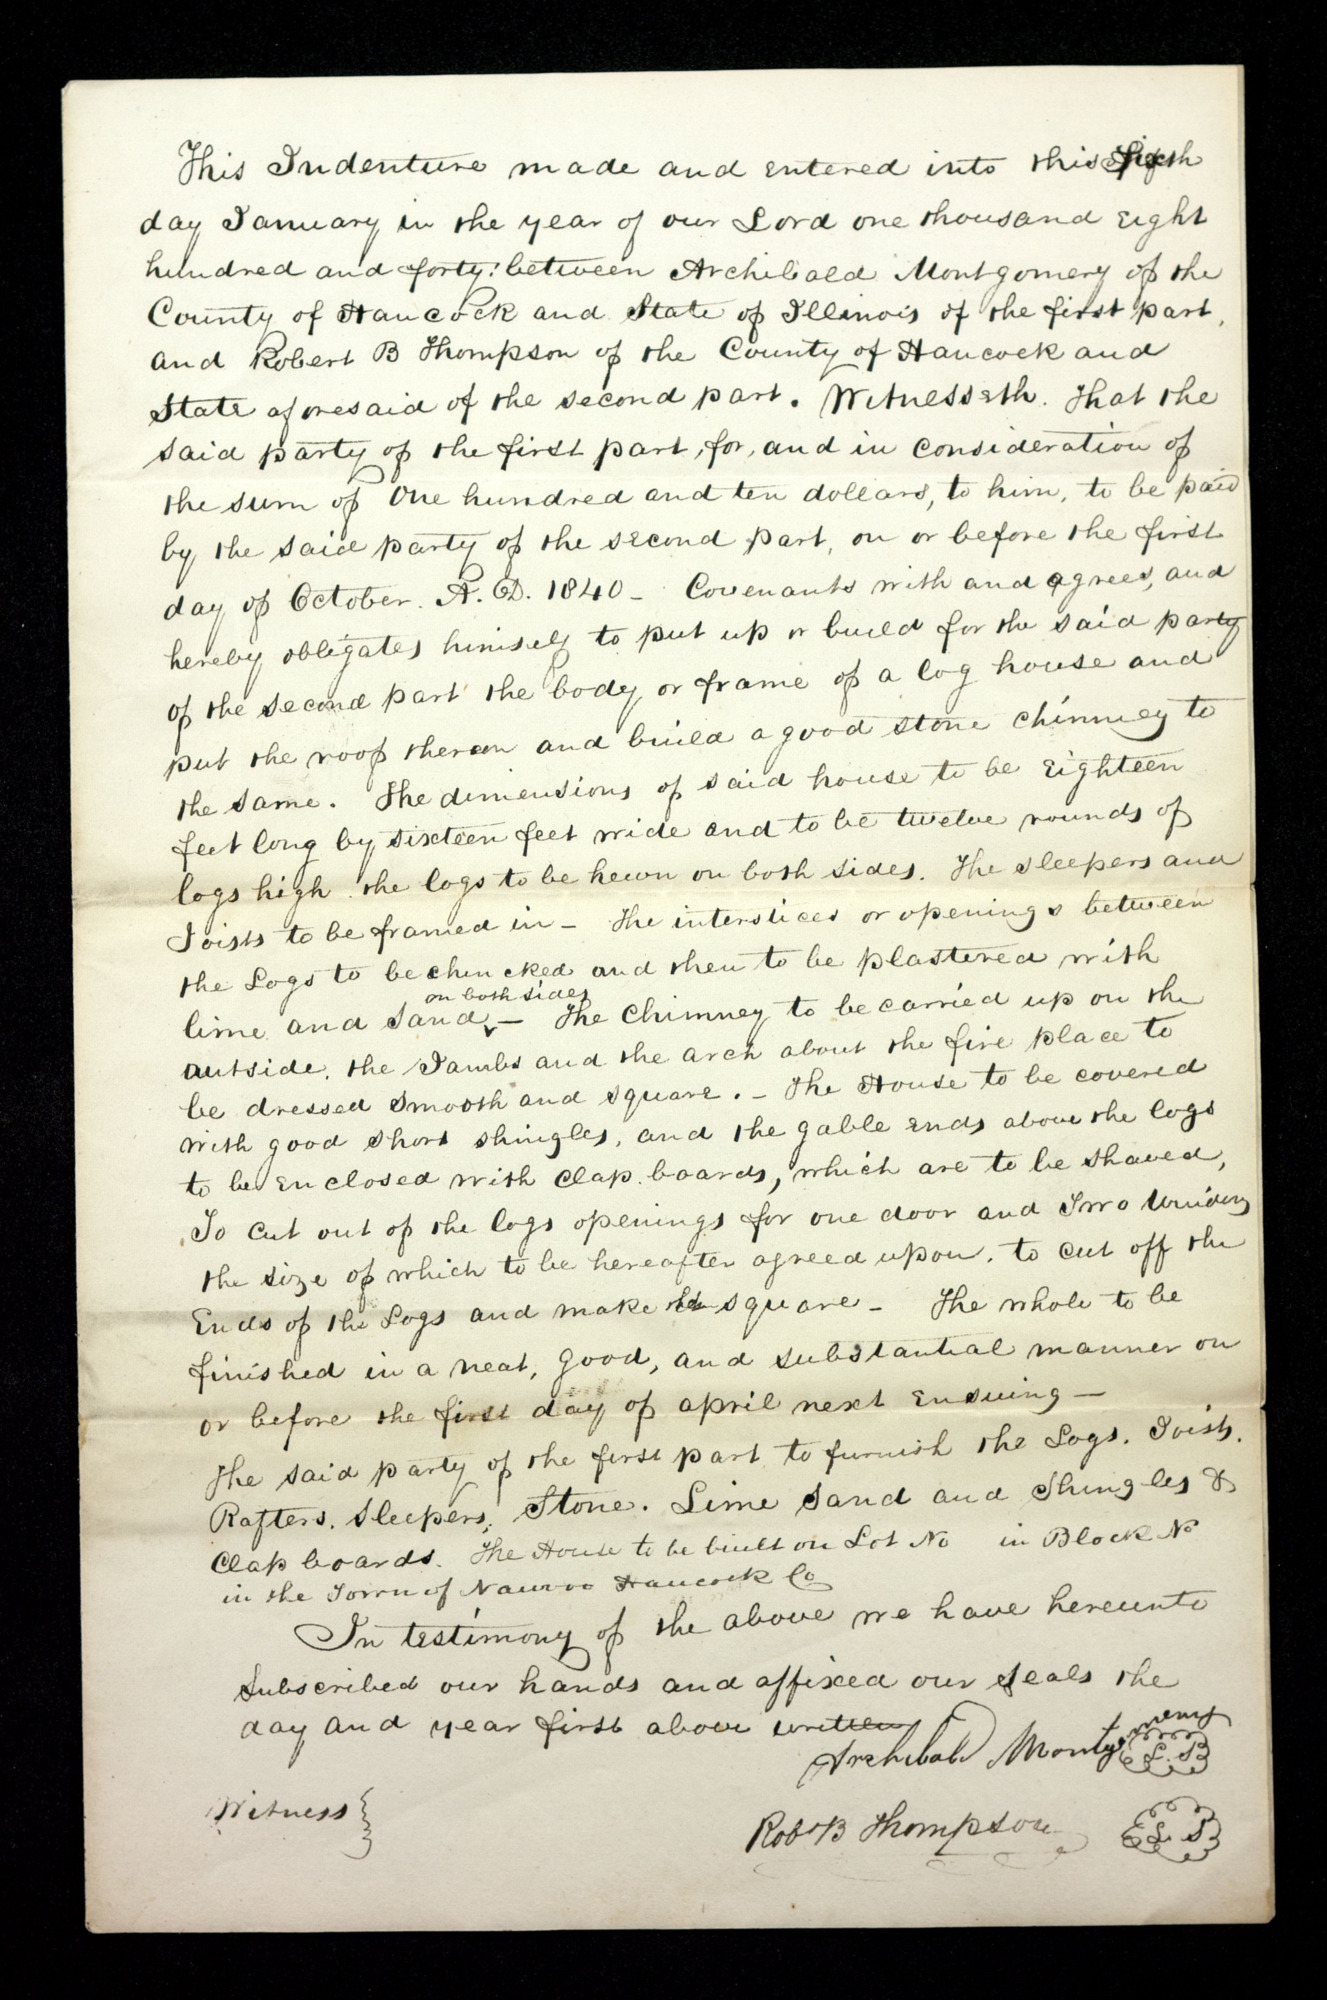 This Indenture made and entered into this Sixth
day January in the year of our Lord one thousand Eight
hundred and forty: between Archibald Montgomery of the
County of Hancock and State of Illinois of the first part,
and Robert B Thompson of the County of Hancock and
State aforesaid of the second part. Witnesseth. That the
said party of the first part, for, and in consideration of
the sum of One hundred and ten dollars, to him, to be paid
by the said party of the second part, on or before the first
day of October. A. D. 1840 - Covenants with and agrees, and
hereby obligates himself to put up or build for the said party
of the second part the body or frame of a log house and
put the roof thereon and build a good stone chimney to
the same. The dimensions of said house to be Eighteen
feet long by sixteen feet wide and to be twelve rounds of
logs high. the logs to be hewn on both sides. The sleepers and
Joists to be framed in - The interstices or openings between
the Logs to be chincked and then to be plastered with
on both sides
lime and sand - The Chimney to be carried up on the
outside, the Jambs and the arch about the fire place to
be dressed smooth and square. - The House to be covered
with good short shingles, and the gable Ends above the logs
to be Enclosed with clap boards, which are to be shaved,
To cut out of the logs openings for one door and Two Windows
the size of which to be hereafter agreed upon. to cut off the
Ends of the Logs and make square - The whole to be
finished in a neat, good, and substantial manner on
or before the first day of april next Ensuing -
The said party of the first part to furnish the Logs. Joists.
Rafters. Sleepers, Stone. Lime Sand and Shingles &
Clap boards. The House to be built on Lot No in Block No
in the Town of Nauvoo Hancock Co
In testimony of the above we have hereunto
Subscribed our hands and affixed our seals the
day and year first above written
Archibald Montgomery L.S
Witness
Robt B Thompson L.S